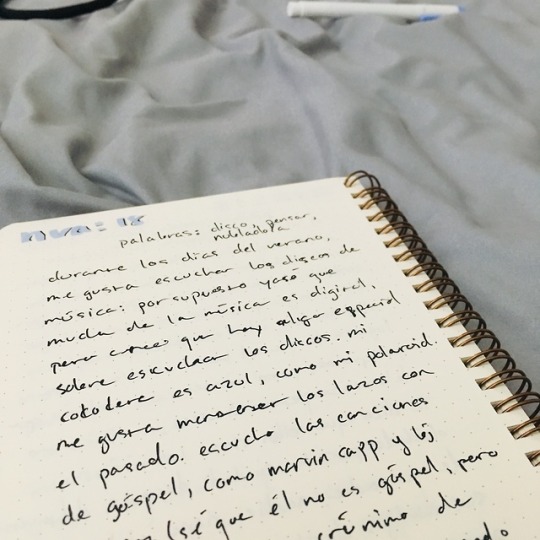 palabras: disco, pensar,
nubladora
durante los días del verano,
me gusta escuchar los discos de
música: por supuesto yo sé que
mucha de la música es digital,
pero creo que hay algo especial
sobre escuchar los discos. mi
es azul, como mi polaroid.
me gusta los lazos con
el pasado. escucho las canciones
de góspel, como marvin sapp y
(sé que él no es góspel, pero
de